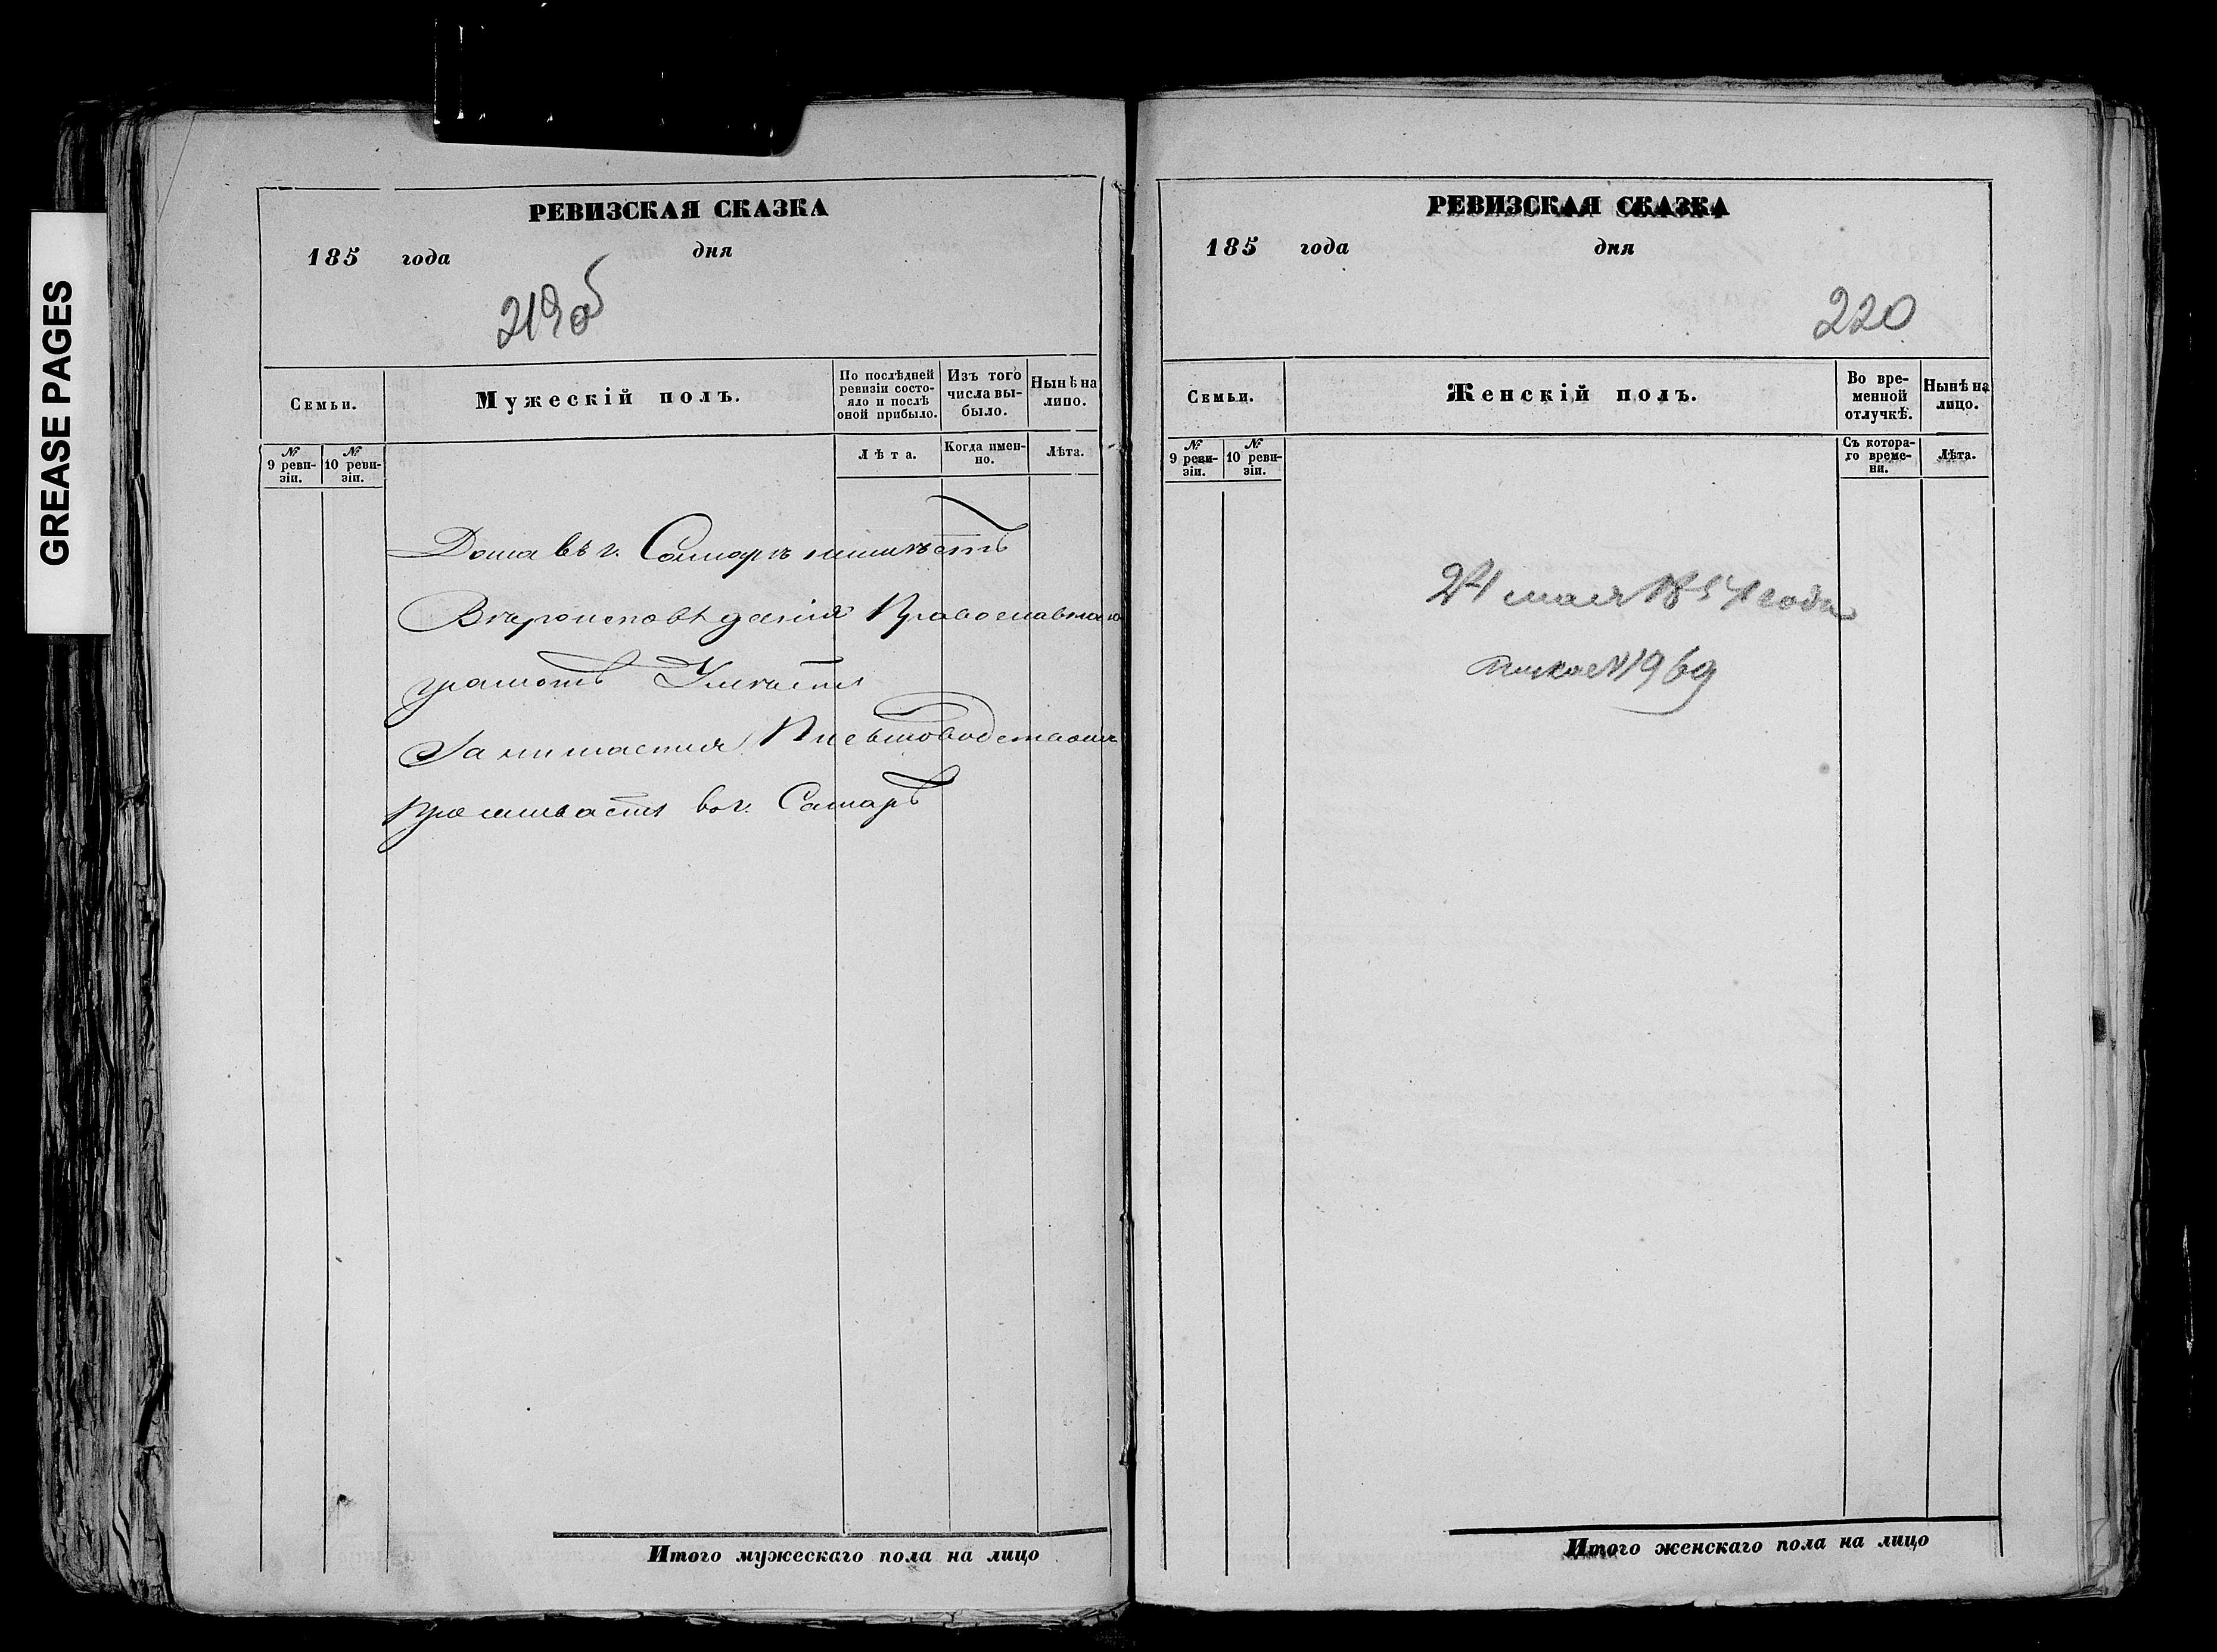 GREASE PAGES
РЕВИЗСКАЯ СКАЗКА
185 года дня
219об
Семьи.
Мужескій полъ.
По послѣдней ревизіи состояло и послѣ оной прибыло.
Изъ того числа выбыло.
Нынѣ на лицо.
№ 9 ревизіи.
№ 10 ревизіи.
Лѣта.
Когда именно.
Лѣта.
Дома въ г. Самарѣ неимѣетъ
Вѣроисповѣданія Православнаго
грамотѣ Умѣетъ
Занимается Письмоводствомъ
Проживаетъ въ г. Самарѣ
Итого мужескаго пола на лицо
РЕВИЗСКАЯ СКАЗКА
185 года дня
220
Семьи.
Женскій полъ.
Во временной отлучкѣ.
Нынѣ на лицо.
№ 9 ревизіи.
№ 10 ревизіи.
Съ котораго времени.
Лѣта.
24 мая года
1969
Итого женскаго пола на лицо